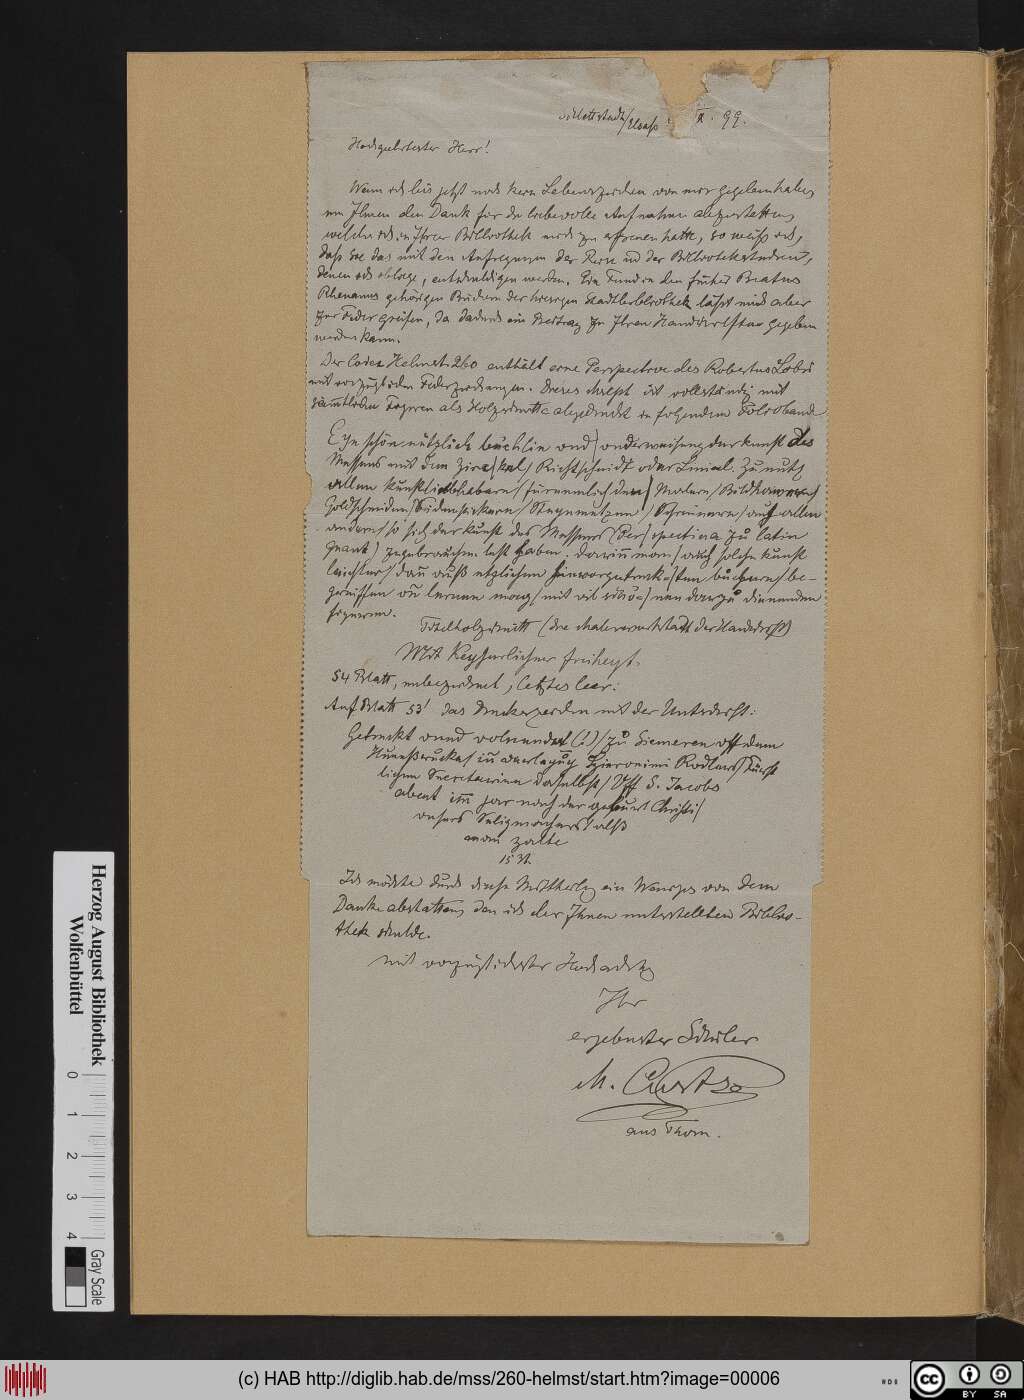 Schlettstadt/Elsass X. 99.
Hochgeehrtester Herr!
Wenn ich bis jetzt noch kein Lebenszeichen von mir gegeben habe,
um Ihnen den Dank für die liebevolle Aufnahme abzustatten,
welche ich in Ihrer Bibliothek mich zu erfreuen hatte, so weiß ich,
daß Sie das mit den Aufregungen der Reise und der Bibliotheksstudien,
denen ich oblage, entschuldigen werden. Ein Fund in den früher Beatus
Rhenanus gehörigen Büchern der hiesigen Stadtbibliothek läßt mich aber
zur Feder greifen, da dadurch ein Beitrag zu Ihren Handschriften gegeben
werden kann.
Der Codex Helmst. 260 enthält eine Perspective des Robertus
mit vorzüglichen Federzeichnungen. Dieses Mscpt ist vollständig mit
sämtlichen Figuren als Holzschnitte abgedruckt in folgendem Folioband
Eyn schön nützlich büchlin und/ underweisung der kunst des
Messens mit dem Zirckel/ Richtscheidt oder Linial. Zu nutz
allen kunstliebhabern/ fürnemlich den/ Malern/ Bildhawern/
Goldschmiden/ Seidenstickern/ Steynmetzen/ Schreinern/ auch allen
andern/ so sich der kunst des Messens (Perspectiva zu latin
gnant) zugebrauchen lust haben. Darinn man/ auch solche kunst
leichter/ dan auß etzlichen hievorgetruckten büchern/ be-
greiffen un lernen mag/ mit vil schönen darzu dienenden
figuren.
Titelholzschnitt (die Malerwerkstatt der Handschrift)
Mit Keyserlicher freiheyt.
54 Blatt, unbezeichnet, letztes leer:
Auf Blatt 53' das Druckerzeichen mit der Unterschrift:
Getruckt unnd volnendet (!)/ zu Siemeren uff dem
Hunnßrucke/ in verlegug Hieronimi Rodlers/ Fürst
lichen Secretarien daselbst/ Uff S. Jacobs
abent im jar nach der geburt Christi/
unsers Seligmachers/ alß
man zalte
1531.
Ich möchte durch diese Mittheilg ein Weniges von dem
Danke abstatten, den ich der Ihnen unterstellten Biblio-
thek schulde.
Mit vorzüglichster Hochachtg
Ihr
ergebenster Schüler
M. Curtze
aus Thorn.
Herzog August Bibliothek
Wolfenbüttel
0 1 2 3 4
Gray Scale
(c) HAB http://diglib.hab.de/mss/260-helmst/start.htm?image=00006
cc BY SA